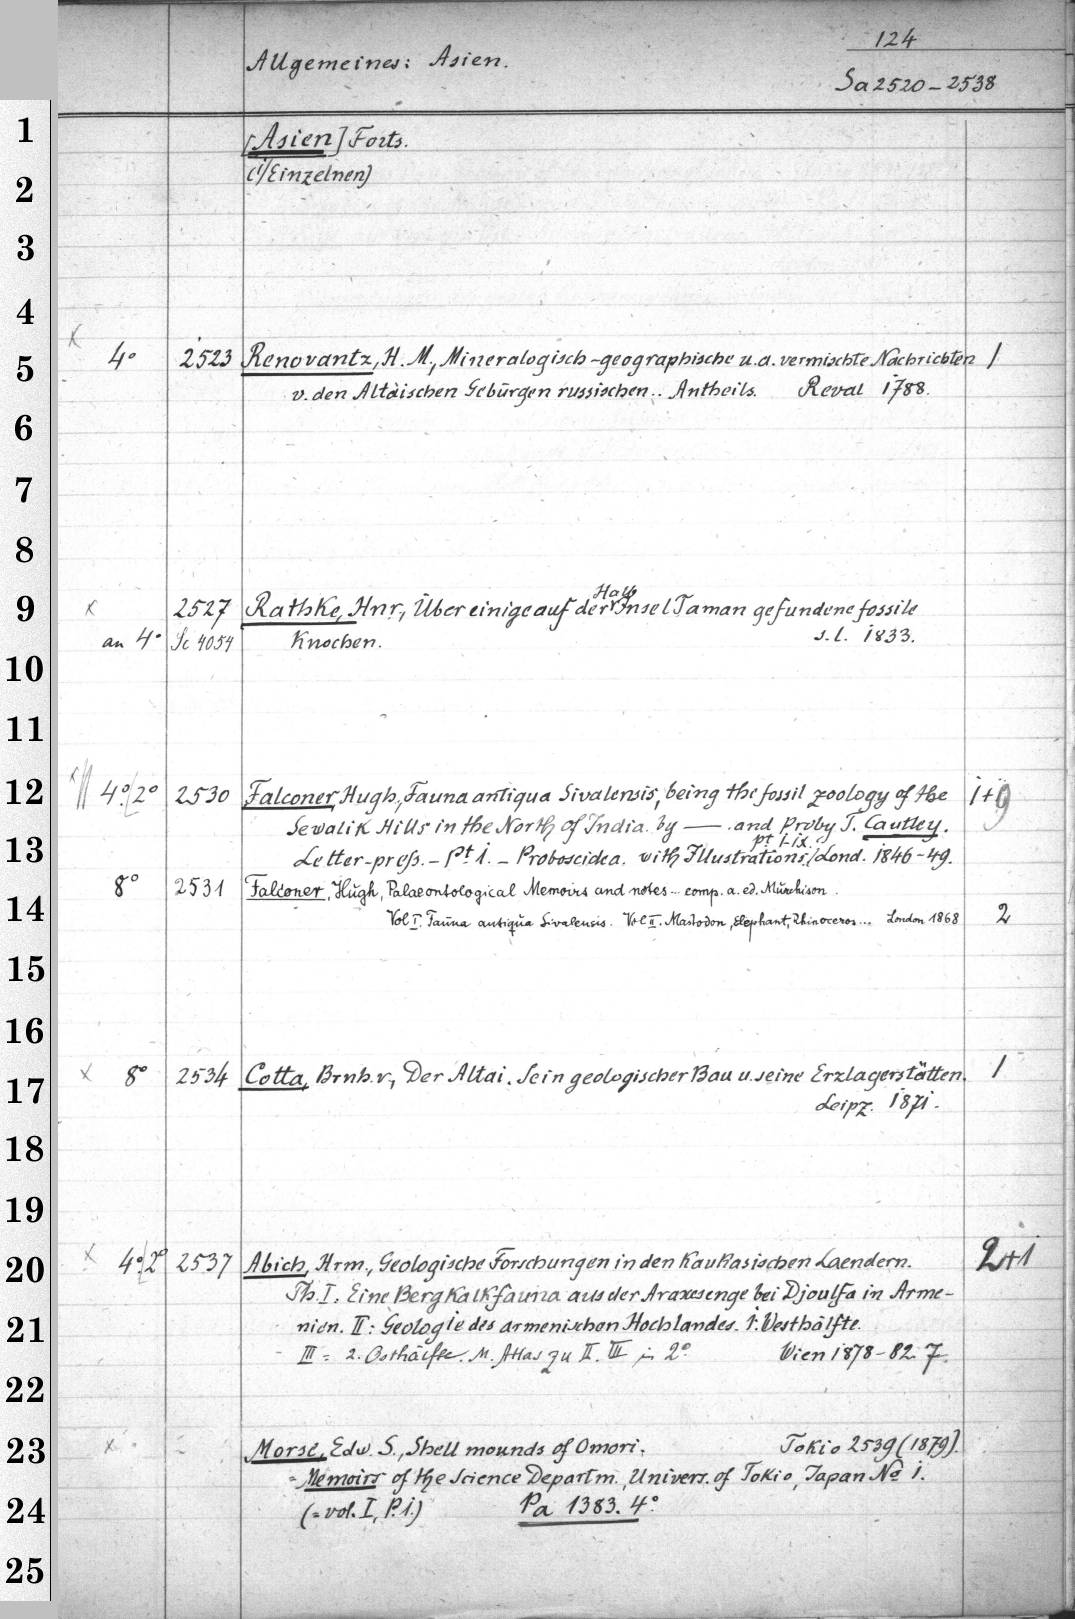 124
Allgemeines: Asien.
Sa 2520-2538
1
[Asien] Forts.
(i/Einzelnen)
2
3
4
4° 2523 Renovantz, H. M., Mineralogisch-geographische u.a. vermischte Nachrichten 1
5
v. den Altäischen Gebürgen russischen.. Antheils. Reval 1788.
6
7
8
Halb
9
x 2527 Rathke, Hnr., Über einige auf der Insel Taman gefundene fossile
an 4° Sc 4054 Knochen. s.l. 1833.
10
11
12
4°.(2° 2530 Falconer, Hugh, Fauna antiqua Sivalensis, being the fossil zoology of the 1+9
Sewalik Hills in the North of India. by — . and Proby T. Cautley.
pt I-ix.
13
Letter-press. - Pt 1. - Proboscidea. with Illustrations./Lond. 1846-49.
8° 2531 Falconer, Hugh, Palaeontological Memoirs and notes... comp. a. ed. Murchison.
14
Vol I. Fauna antiqua Sivalensis. Vol II. Mastodon, Elephant, Rhinoceros... London 1868 2
15
16
x 8° 2534 Cotta, Brnh. v., Der Altai. Sein geologischer Bau u. seine Erzlagerstätten. 1
17
Leipz. 1871.
18
19
x 4°.(2° 2537 Abich, Hrm., Geologische Forschungen in den Kaukasischen Laendern. 2+1
20
Th. I. Eine Bergkalkfauna aus der Araxesenge bei Djoulfa in Arme-
21
nien. II: Geologie des armenischen Hochlandes. 1. Westhälfte.
III = 2. Osthälfte. M. Atlas zu II. III in 2° Wien 1878-82. 7.
22
23
x Morse, Edw. S., Shell mounds of Omori. Tokio 2539 (1879).
= Memoirs of the Science Departm., Univers. of Tokio, Japan No 1.
24
(= vol. I, P. 1.) Pa 1383. 4°
25